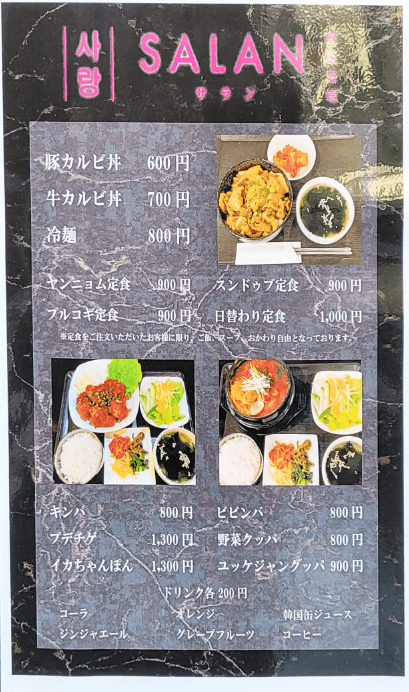 사랑
SALAN
サラン
豚カルビ丼 600円
牛カルビ丼 700円
冷麺 800円
ヤンニョム定食 900円 スンドゥブ定食 900円
プルコギ定食 900円 日替わり定食 1,000円
※定食をご注文いただいたお客様に限り、ご飯、スープ、おかわり自由となっております。
キンパ 800円 ビビンバ 800円
プデチゲ 1,300円 野菜クッパ 800円
イカちゃんぽん 1,300円 ユッケジャングッパ 900円
ドリンク各200円
コーラ オレンジ 韓国缶ジュース
ジンジャエール グレープフルーツ コーヒー